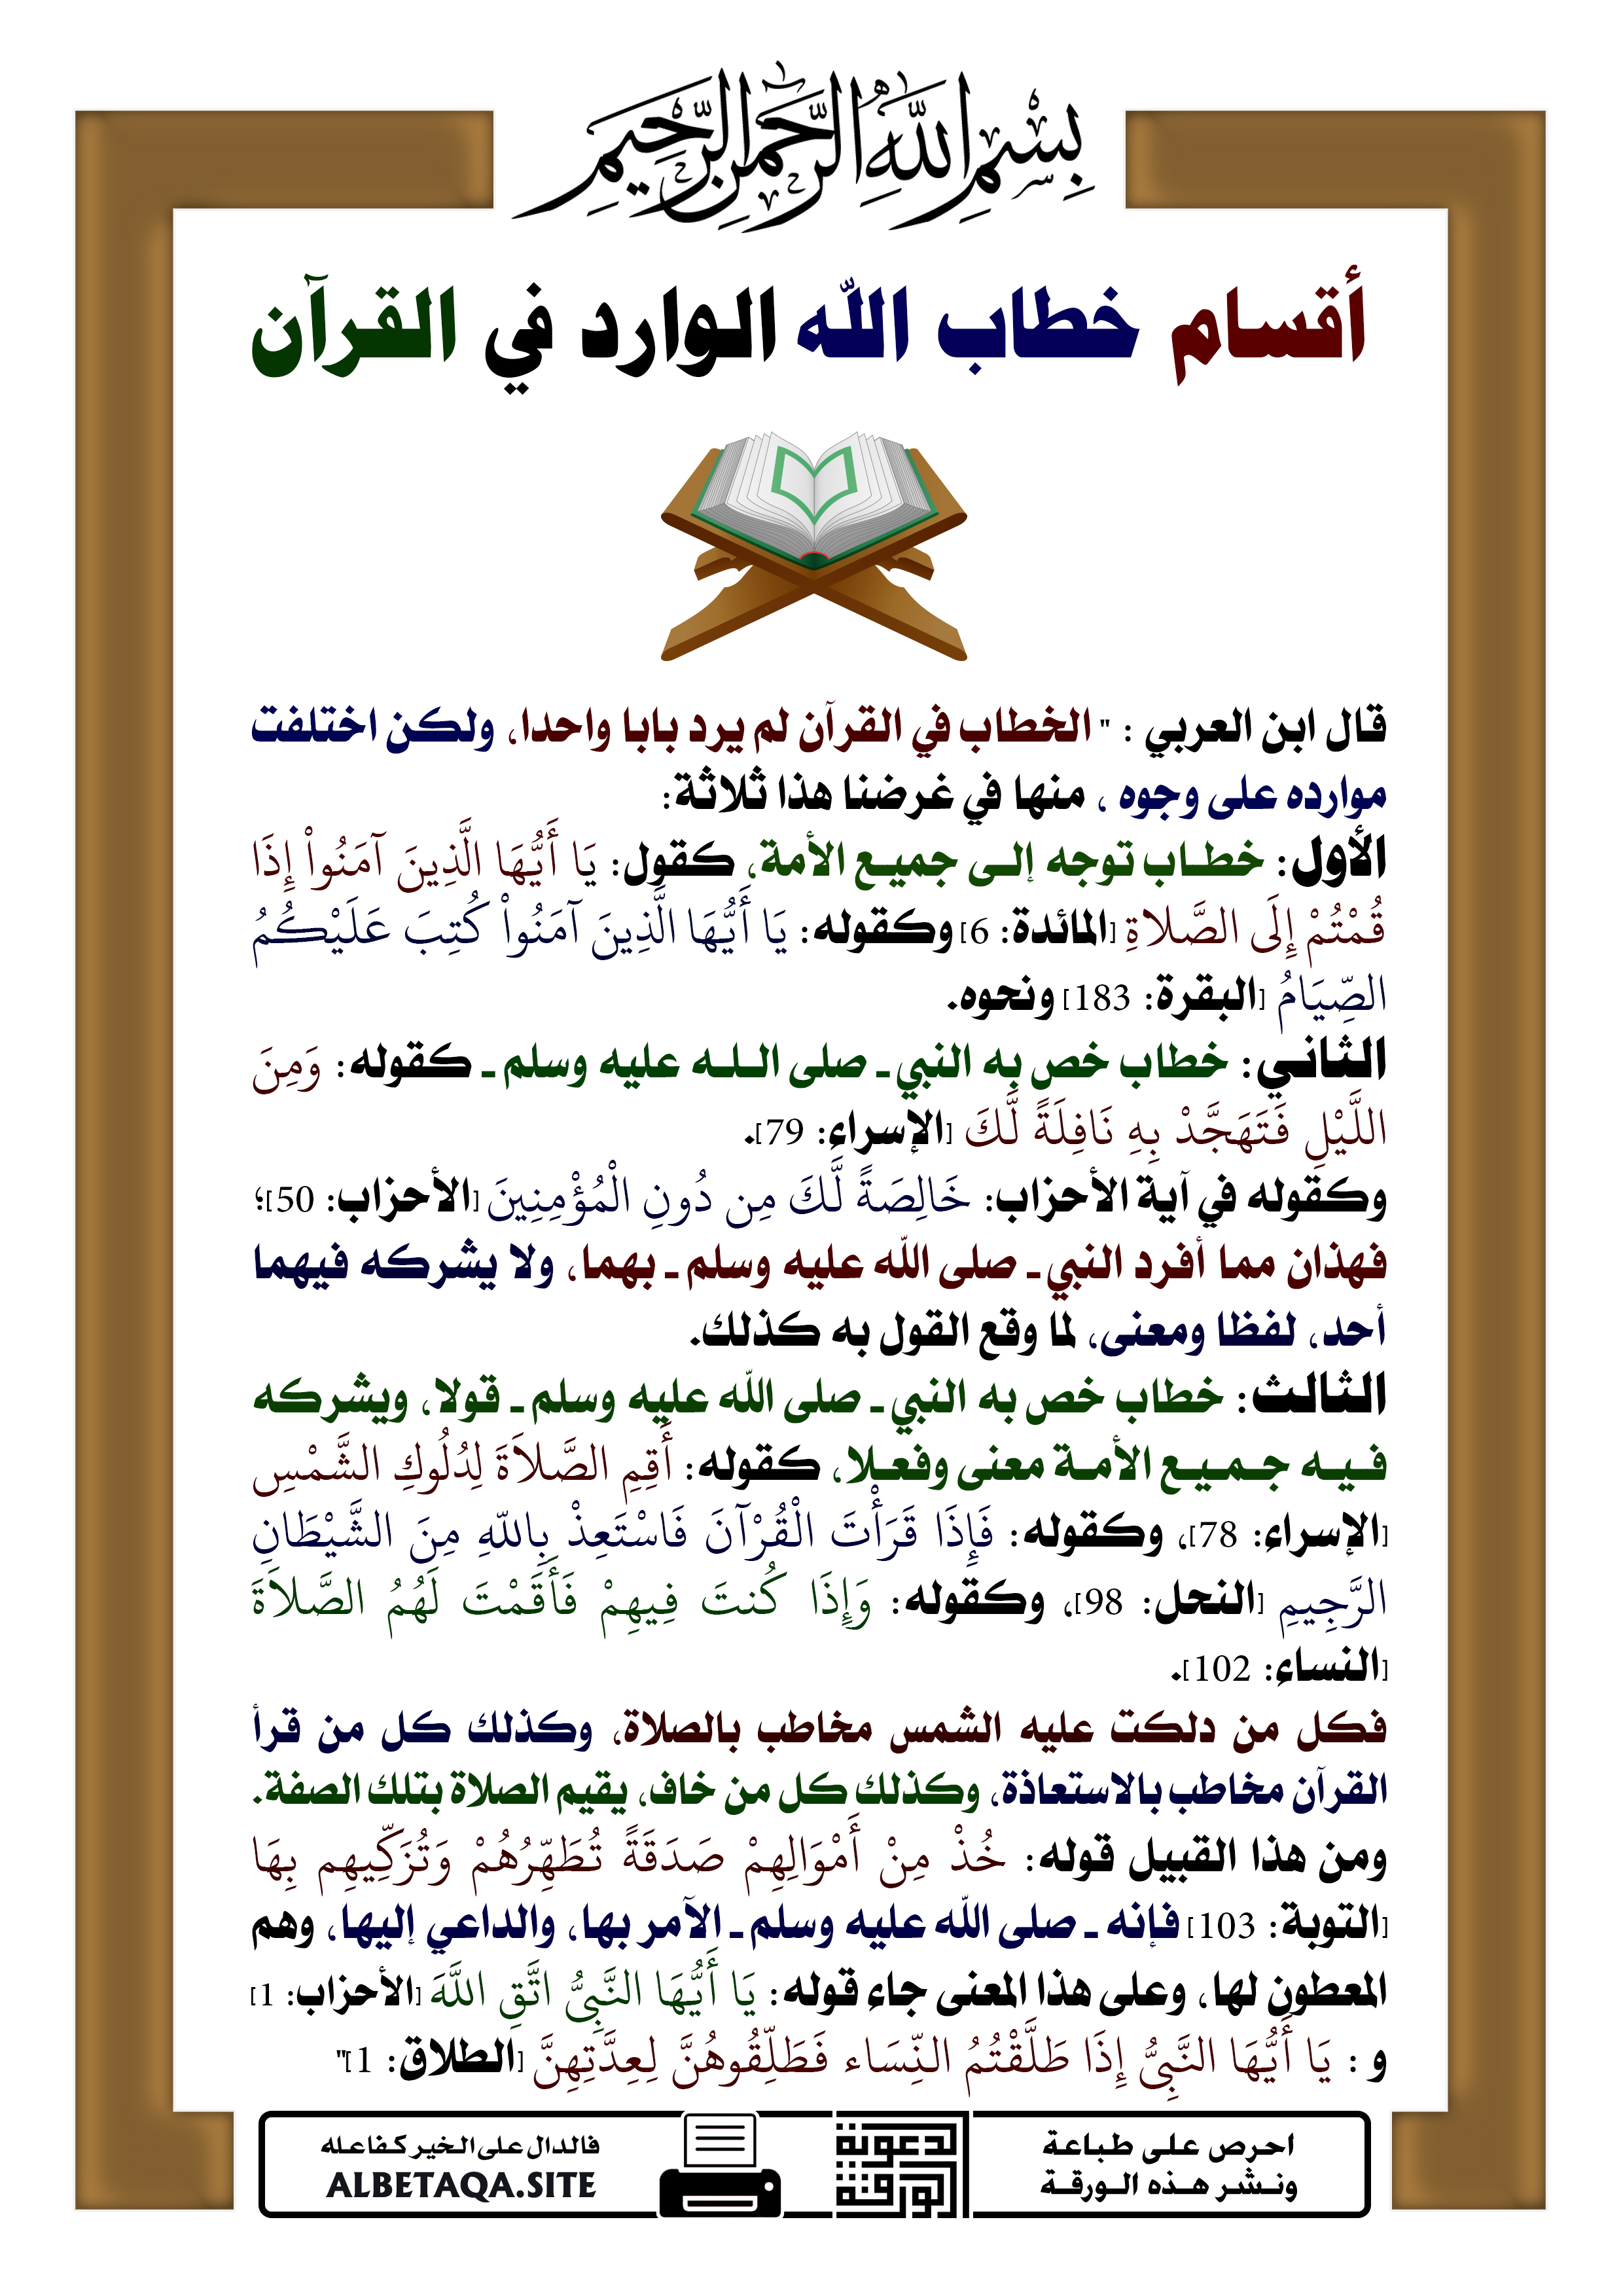 بِسْمِ اللَّهِ الرَّحْمَٰنِ الرَّحِيمِ
أقسام خطاب الله الوارد في القرآن
قال ابن العربي : " الخطاب في القرآن لم يرد بابا واحدا، ولكن اختلفت
موارده على وجوه ، منها في غرضنا هذا ثلاثة:
الأول: خطاب توجه إلى جميع الأمة، كقول: يَا أَيُّهَا الَّذِينَ آمَنُواْ إِذَا
قُمْتُمْ إِلَى الصَّلاةِ [المائدة: 6] وكقوله: يَا أَيُّهَا الَّذِينَ آمَنُواْ كُتِبَ عَلَيْكُمُ
الصِّيَامُ [البقرة: 183] ونحوه.
الثاني: خطاب خص به النبي ـ صلى الله عليه وسلم ـ كقوله: وَمِنَ
اللَّيْلِ فَتَهَجَّدْ بِهِ نَافِلَةً لَّكَ [الإسراء: 79].
وكقوله في آية الأحزاب: خَالِصَةً لَّكَ مِن دُونِ الْمُؤْمِنِينَ [الأحزاب: 50]؛
فهذان مما أفرد النبي ـ صلى الله عليه وسلم ـ بهما، ولا يشركه فيهما
أحد، لفظا ومعنى، لما وقع القول به كذلك.
الثالث: خطاب خص به النبي ـ صلى الله عليه وسلم ـ قولا، ويشركه
فيه جميع الأمة معنى وفعلا، كقوله: أَقِمِ الصَّلاَةَ لِدُلُوكِ الشَّمْسِ
[الإسراء: 78]، وكقوله: فَإِذَا قَرَأْتَ الْقُرْآنَ فَاسْتَعِذْ بِاللّهِ مِنَ الشَّيْطَانِ
الرَّجِيمِ [النحل: 98]، وكقوله: وَإِذَا كُنتَ فِيهِمْ فَأَقَمْتَ لَهُمُ الصَّلاَةَ
[النساء: 102].
فكل من دلكت عليه الشمس مخاطب بالصلاة، وكذلك كل من قرأ
القرآن مخاطب بالاستعاذة، وكذلك كل من خاف، يقيم الصلاة بتلك الصفة.
ومن هذا القبيل قوله: خُذْ مِنْ أَمْوَالِهِمْ صَدَقَةً تُطَهِّرُهُمْ وَتُزَكِّيهِم بِهَا
[التوبة: 103] فإنه ـ صلى الله عليه وسلم ـ الآمر بها، والداعي إليها، وهم
المعطون لها، وعلى هذا المعنى جاء قوله: يَا أَيُّهَا النَّبِيُّ اتَّقِ اللَّهَ [الأحزاب: 1]
و : يَا أَيُّهَا النَّبِيُّ إِذَا طَلَّقْتُمُ النِّسَاء فَطَلِّقُوهُنَّ لِعِدَّتِهِنَّ [الطلاق: 1]"
احرص على طباعة
ونشر هذه الورقة
الورقة
الدعوية
فالدال على الخير كفاعله
ALBETAQA.SITE